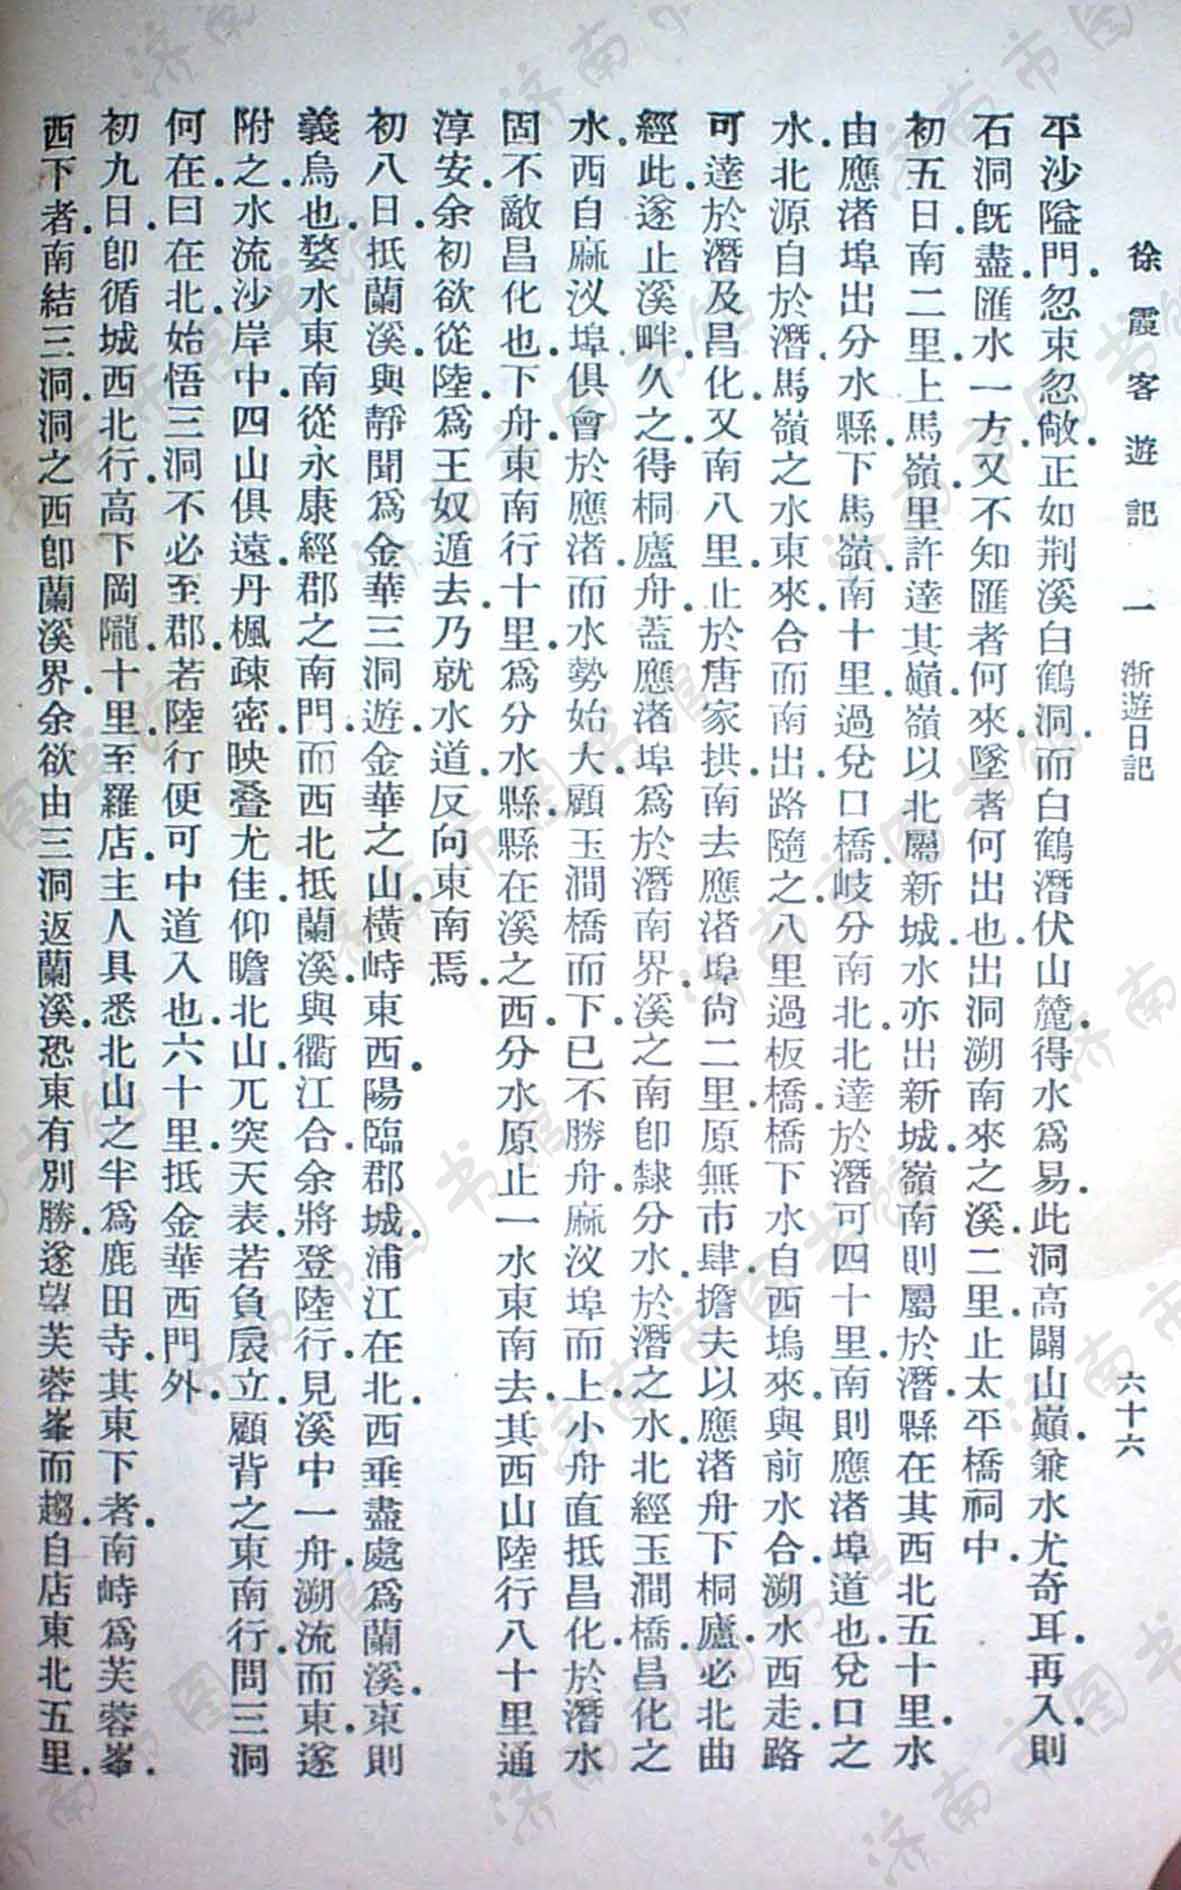 徐霞客遊記　一　浙遊日記　六十六
平沙隘門．忽束忽敞．正如荆溪白鶴洞．而白鶴潛伏山麓．得水爲易．此洞高闢山巔．兼水尤奇耳．再入則
石洞旣盡．匯水一方．又不知匯者何來．墜者何出也．出洞溯南來之溪．二里．止太平橋祠中．
初五日．南二里．上馬嶺．里許達其巔．嶺以北屬新城．水亦出新城．嶺南則屬於潛．縣在其西北五十里．水
由應渚埠出分水縣．下馬嶺．南十里．過兌口橋．岐分南北．北達於潛可四十里．南則應渚埠道也．兌口之
水．北源自於潛．馬嶺之水東來．合而南出．路隨之．八里過板橋．橋下水自西塢來．與前水合．溯水西走．路
可達於潛及昌化．又南八里．止於唐家拱．南去應渚埠尙二里．原無市肆．擔夫以應渚舟下桐廬．必北曲
經此．遂止溪畔．久之．得桐廬舟．蓋應渚埠爲於潛南界．溪之南卽隸分水．於潛之水．北經玉澗橋．昌化之
水．西自麻汊埠．俱會於應渚．而水勢始大．顧玉澗橋而下．已不勝舟．麻汊埠而上．小舟直抵昌化．於潛水
固不敵昌化也．下舟．東南行．十里．爲分水縣．縣在溪之西．分水原止一水東南去．其西山陸行八十里通
淳安．余初欲從陸．爲王奴遁去．乃就水道．反向東南焉．
初八日．抵蘭溪．與靜聞爲金華三洞遊．金華之山．橫峙東西．陽臨郡城．浦江在北．西垂盡處爲蘭溪．東則
義烏也．婺水東南從永康經郡之南門．而西北抵蘭溪．與衢江合．余將登陸行．見溪中一舟溯流而東．遂
附之．水流沙岸中．四山俱遠．丹楓疎密．映叠尤佳．仰瞻北山．兀突天表．若負扆立．顧背之東南行．問三洞
何在．曰在北．始悟三洞不必至郡．若陸行便可中道入也．六十里．抵金華西門外．
初九日．卽循城西北行．高下岡隴．十里．至羅店．主人具悉北山之半爲鹿田寺．其東下者．南峙爲芙蓉峯．
西下者．南結三洞．洞之西卽蘭溪界．余欲由三洞返蘭溪．恐東有別勝．遂望芙蓉峯而趨．自店東北五里．